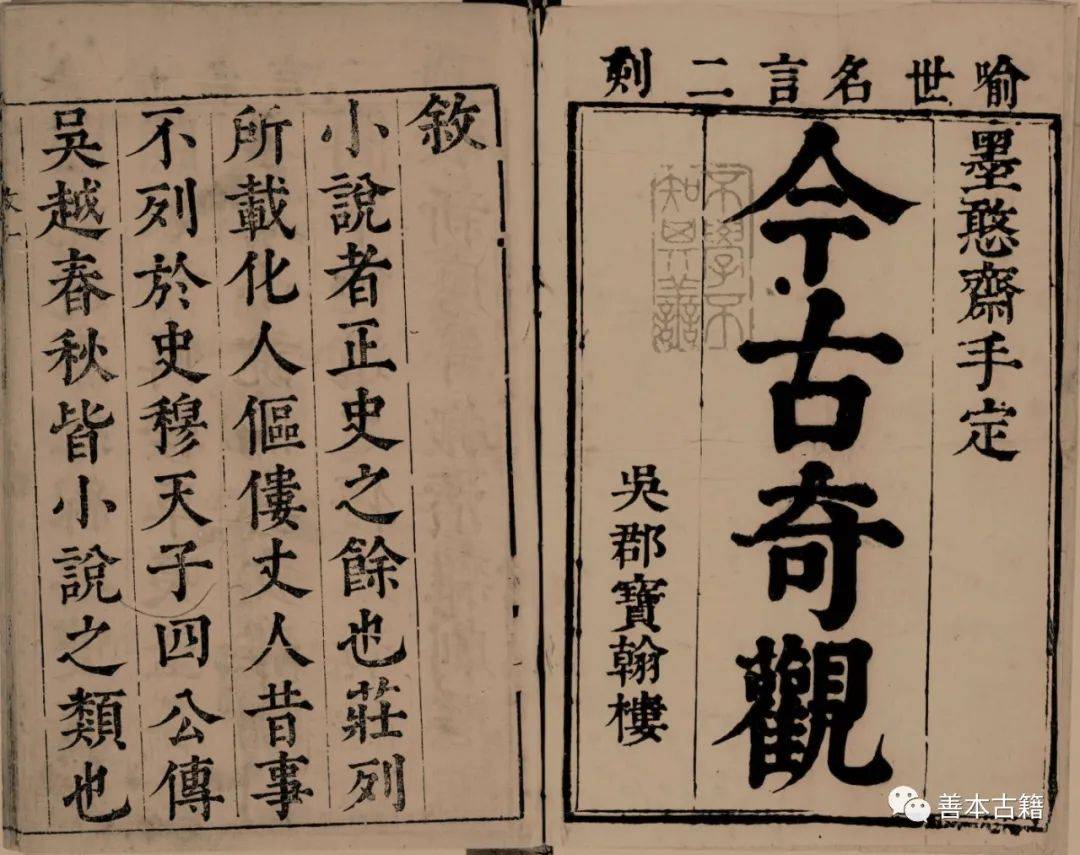 喻世名言二刻
墨憨齋手定
今古奇觀
不學不
知其善
吳郡寶翰樓
敘
小說者正史之餘也莊列
所載化人傴僂丈人昔事
不列於史穆天子四公傳
吳越春秋皆小說之類也
善本古籍